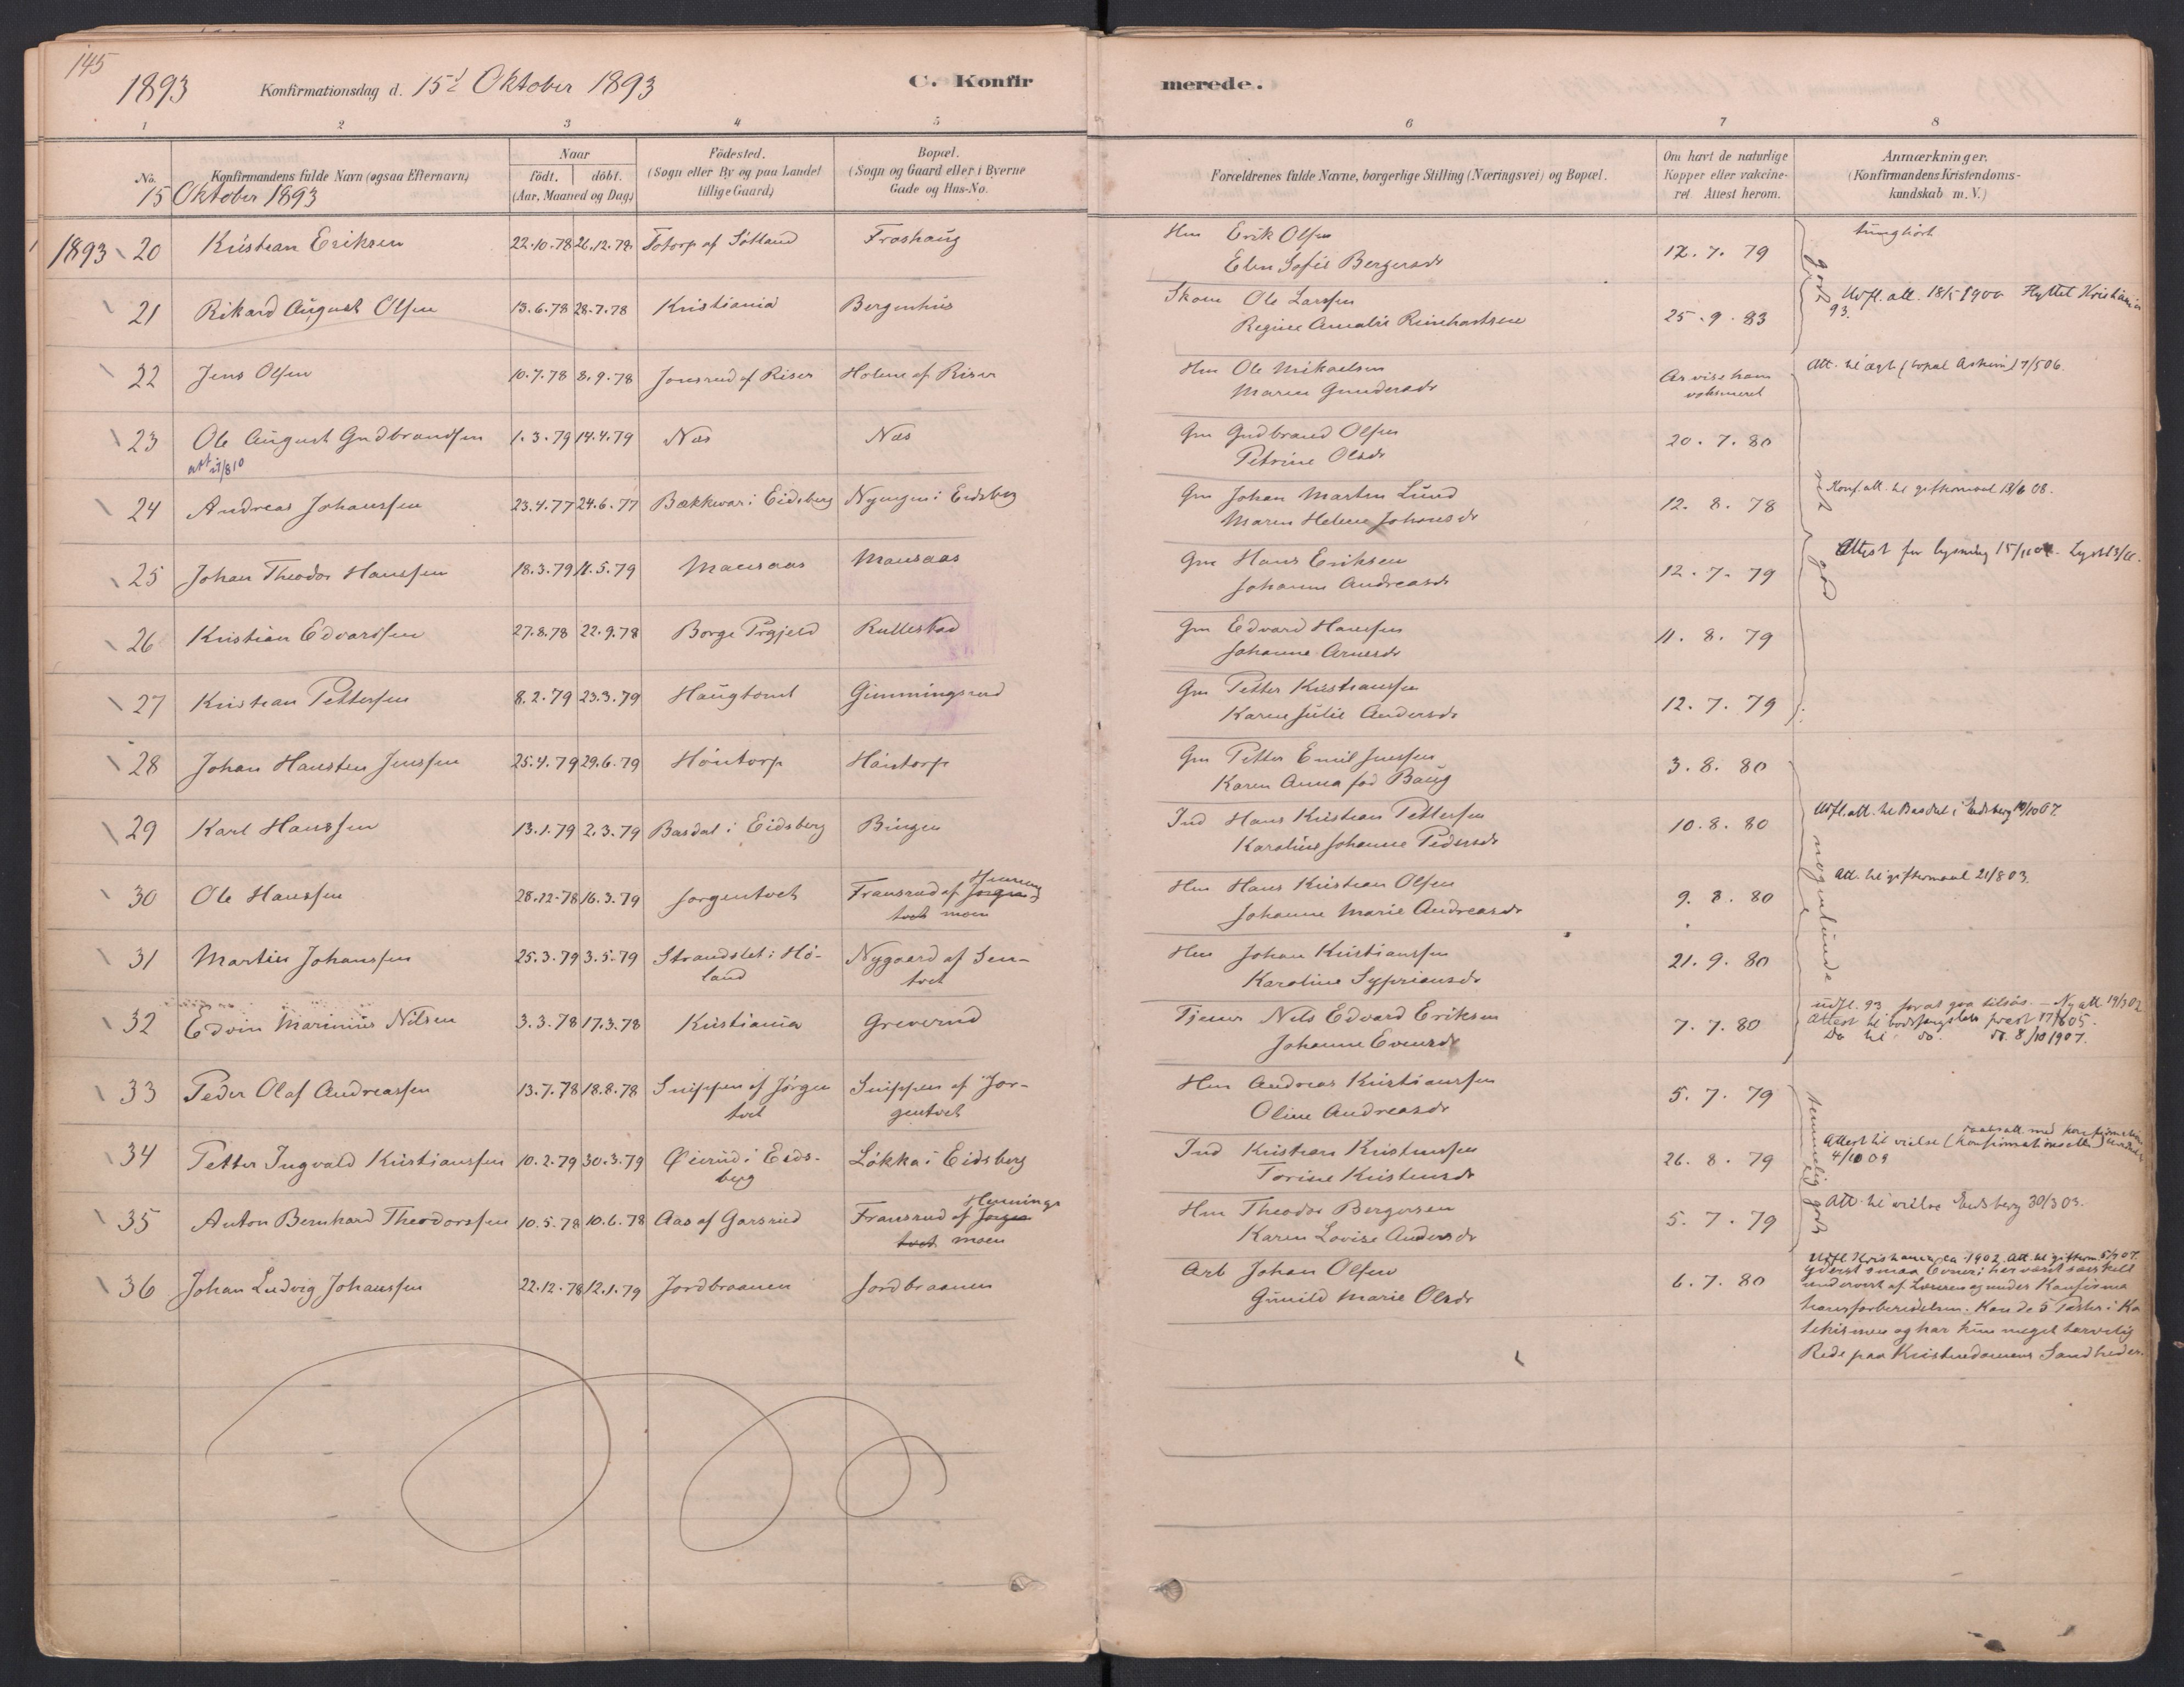 145
1893 Konfirmationsdag d. 15d Oktober 1893 C. Konfirmerede.
1 2 3 4 5 6 7 8
No. Konfirmandens fulde Navn (ogsaa Efternavn) Naar födt. döbt. (Aar, Maaned og Dag) Födested. (Sogn eller By og paa Landet tillige Gaard) Bopæl. (Sogn og Gaard eller i Byerne Gade og Hus-No. Forældrenes fulde Navne, borgerlige Stilling (Næringsvei) og Bopæl. Om havt de naturlige Kopper eller vakcineret Attest herom. Anmærkninger. (Konfirmandens Kristendomskundskab m. V.)
15 Oktober 1893
1893 20 Kristian Eriksen 22.10.78 26.12.78 Totorp af Sötland Froshaug Hm Erik Olsen 12.7.79 tunghört
Elen Sofie Bergersdr
god
21 Rikard August Olsen 13.6.78 28.7.78 Kristiania Bergenhus Skom Ole Larssen 25.9.83 Udfl. att. 18/5 1900 Flyttet Kristiania
Regine Amalie Rinehartsen 93.
22 Jens Olsen 10.7.78 8.9.78 Jonsrud af Riser Holene af Riser Hm Ole Mikaelsen Att. til ægt. (bopæl Askim) 7/5 06.
Maren Gundersdr
23 Ole August Gudbrandsen 1.3.79 14.4.79 Næs Næs Gm Gudbrand Olsen 20.7.80
att 27/8 10 Petrine Olsdr
24 Andreas Johanssen 23.4.77 24.6.77 Bækkevar i Eidsberg Nyengen i Eidsberg Gm Johan Martin Lund 12.8.78 Konf. att. til giftermaal 13/6 08.
Maren Helene Johansdr
25 Johan Theodor Hanssen 18.3.79 11.5.79 Mansaas Mansaas Gm Hans Eriksen 12.7.79 Attest for lysning 15/11 04. Lyst 13/11.
Johanne Andreasdr
god
26 Kristian Edvardsen 27.8.78 22.9.78 Borge Prgjeld Rullestad Gm Edvard Hanssen 11.8.79
Johanne Arnesdr
27 Kristian Pettersen 8.2.79 23.3.79 Haugtomt Gimmingsrud Gm Petter Kristianssen 12.7.79
Karen Julie Andersdr
28 Johan Hansten Jenssen 25.4.79 29.6.79 Höntorp Höntorp Gm Petter Emil Jenssen 3.8.80
Karen Anna föd Baug
29 Karl Hanssen 13.1.79 2.3.79 Basdal i Eidsberg Bingen Ind Hans Kristian Pettersen 10.8.80 Udfl. att. til Basdal i Eidsberg 19/10 07.
Karoline Johanne Pedersdr
nogenlunde
30 Ole Hanssen 28.12.78 16.3.79 Jorgentvet Fransrud af Jorgen Hennings Hm Hans Kristian Olsen 9.8.80 Att. til giftermaal 21/8 03.
tvet moen Johanne Marie Andreasdr
31 Martin Johanssen 25.3.79 3.5.79 Strandslet i Hö- Nygaard af Sen- Hm Johan Kristianssen 21.9.80
land tvet Karoline Syprionsdr
32 Edvin Marinius Nilsen 3.3.78 17.3.78 Kristiania Greverud Tjener Nils Edvard Eriksen 7.7.80 udfl. 93 for at gaa tilsös. - Ny att. 19/3 02
Johanne Evensdr Attest til bodsfængslets præst 17/8 05.
Do til do. do. 8/10 1907.
33 Peder Olaf Andreassen 13.7.78 18.8.78 Snippen af Jörgen Snippen af Jor- Hm Andreas Kristianssen 5.7.79
tvet gentvet Oline Andreasdr
temmelig god
34 Petter Ingvald Kristianssen 10.2.79 30.3.79 Øierud i Eids- Lökka i Eidsberg Ind Kristian Kristenssen 26.8.79 Attest til vielse
berg Torine Kristensdr 4/10 09
35 Anton Bernhard Theodorssen 10.5.78 10.6.78 Aas af Garsrud Fransrud af Jorgen Hennings Hm Theodor Bergersen 5.7.79 Att. til vielse Eidsberg 30/3 03.
tvet moen Karen Lovise Andersdr
36 Johan Ludvig Johanssen 22.12.78 12.1.79 Jordbraanen Jordbraanen Arb Johan Olsen 6.7.80 Udfl. Kristiania ca 1902. Att. til gifterm. 5/7 07.
Gunild Marie Olsdr yderst smaa Evner; har været særskilt
undervist af Læreren og under Konfirma
tionsforberedelsen. Kan de 5 Parter i Ka
tekismen og har kun meget tarvelig
Rede paa Kristendomens Sandheder.